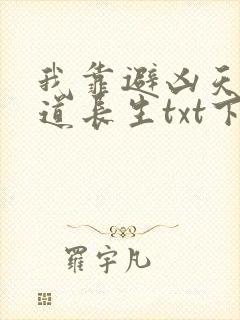 我靠避凶天
道长生txt下
罗宇凡